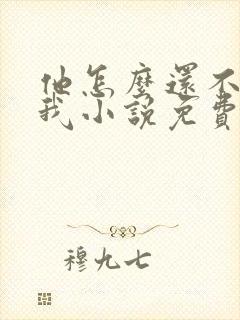 他怎麼還不
我小說免費
穆九七